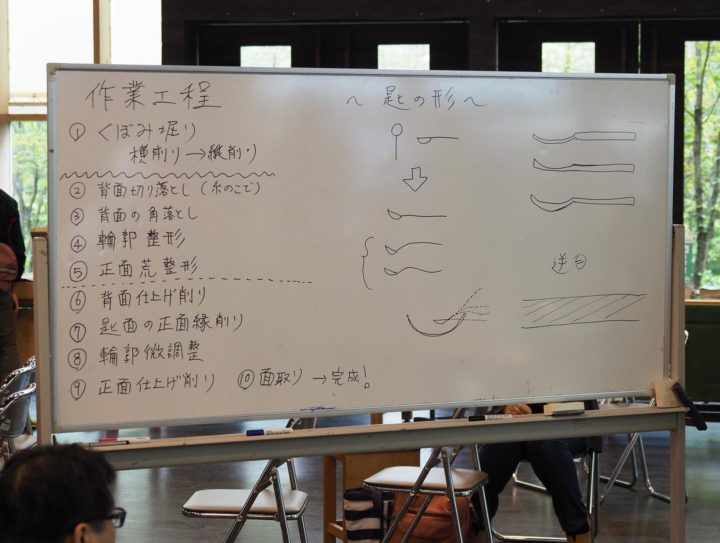 作業工程
① くぼみ堀り
横削り→縦削り
② 背面切り落とし(糸のこで)
③ 背面の角落とし
④ 輪郭整形
⑤ 正面荒整形
⑥ 背面仕上げ削り
⑦ 匙面の正面縁削り
⑧ 輪郭微調整
⑨ 正面仕上げ削り ⑩面取り →完成!
~ 匙の形 ~
逆目